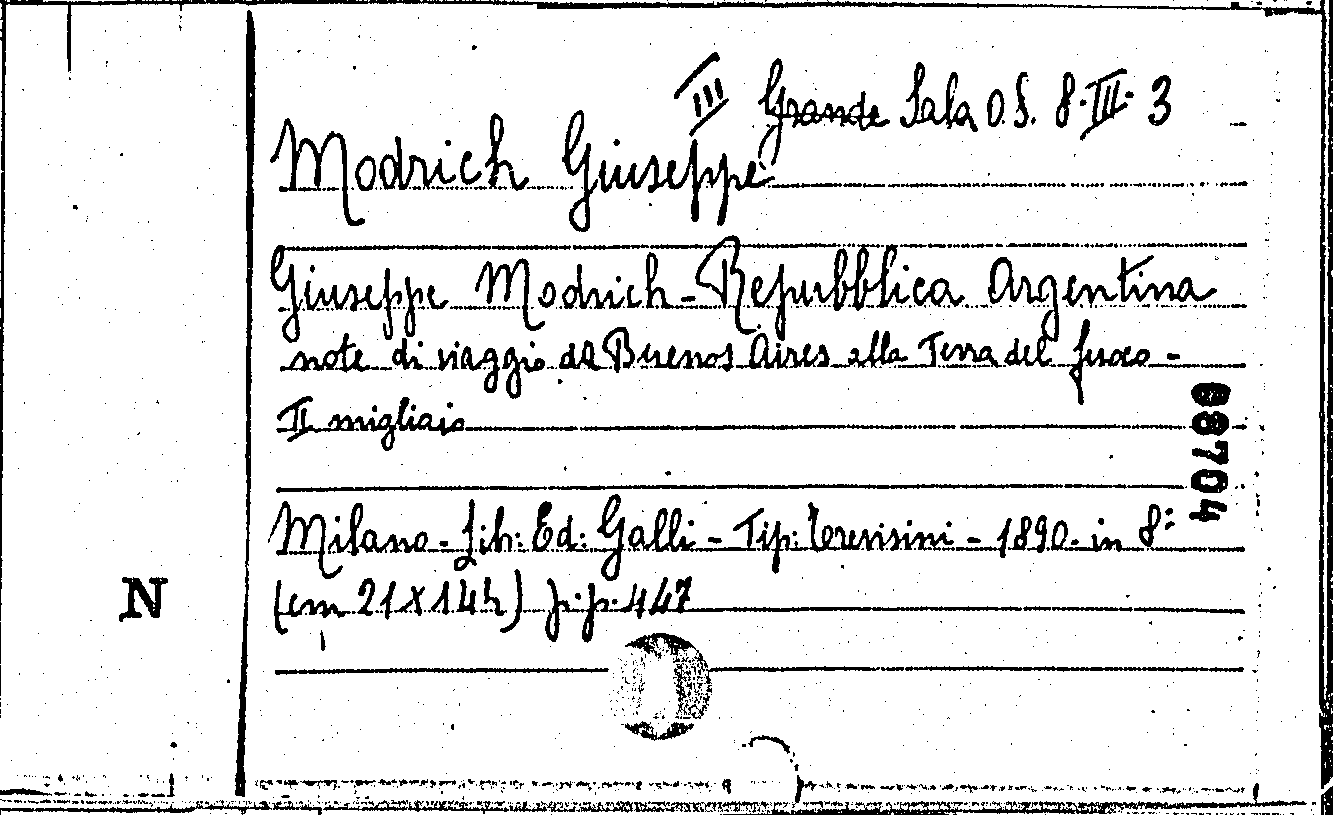 III Grande Sala O.S. 8.III.3
Modrich Giuseppe
Giuseppe Modrich - Repubblica Argentina
note di viaggio da Buenos Aires alla Terra del fuoco -
II migliaio
88704
Milano - Lib: Ed: Galli - Tip: Trevisini - 1890. in 8:
N
(cm 21 X 14 h) p.p. 447